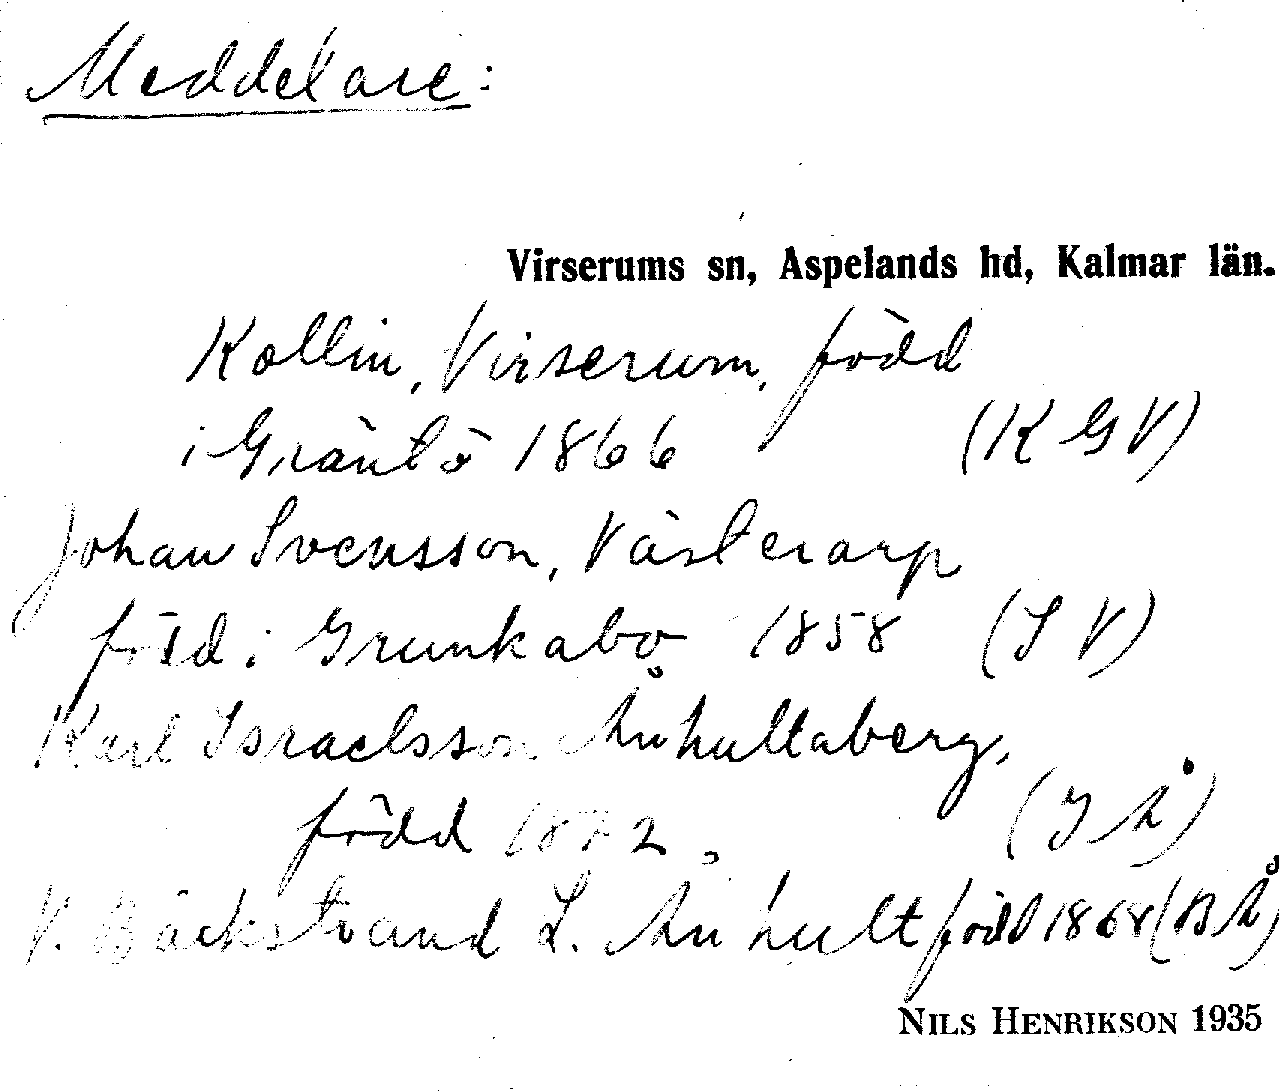 Meddelare:
Virserums sn, Aspelands hd, Kalmar län.
Kollin, Virserum, född
i Gräntö 1866 (K G V)
Johan Svensson, Västerarp
född i Grunkabo 1858 (S V)
Karl Israelsson Ånhultaberg,
född 1872. (I Å)
V. Bäckstrand L. Ånhult född 1868 (B Å)
NILS HENRIKSON 1935